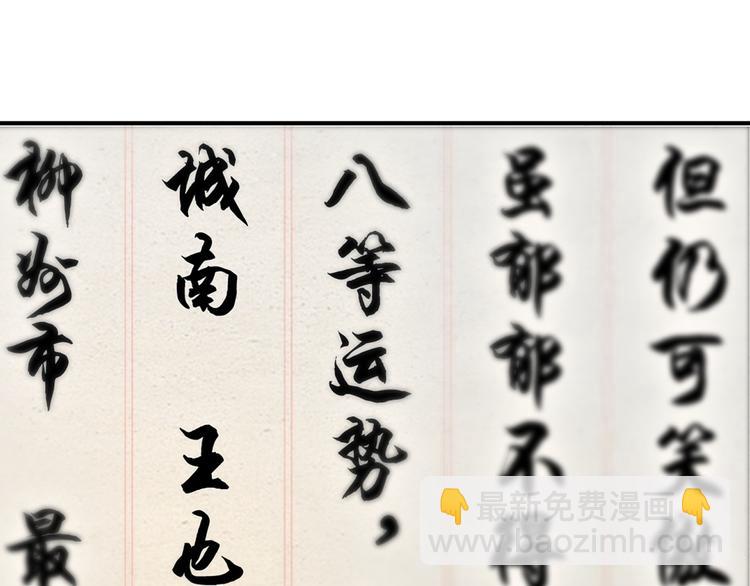 柳州市 最
城南 王也
八等运势，
虽郁郁不得
但仍可笑傲
最新免费漫画
www.baozimh.com